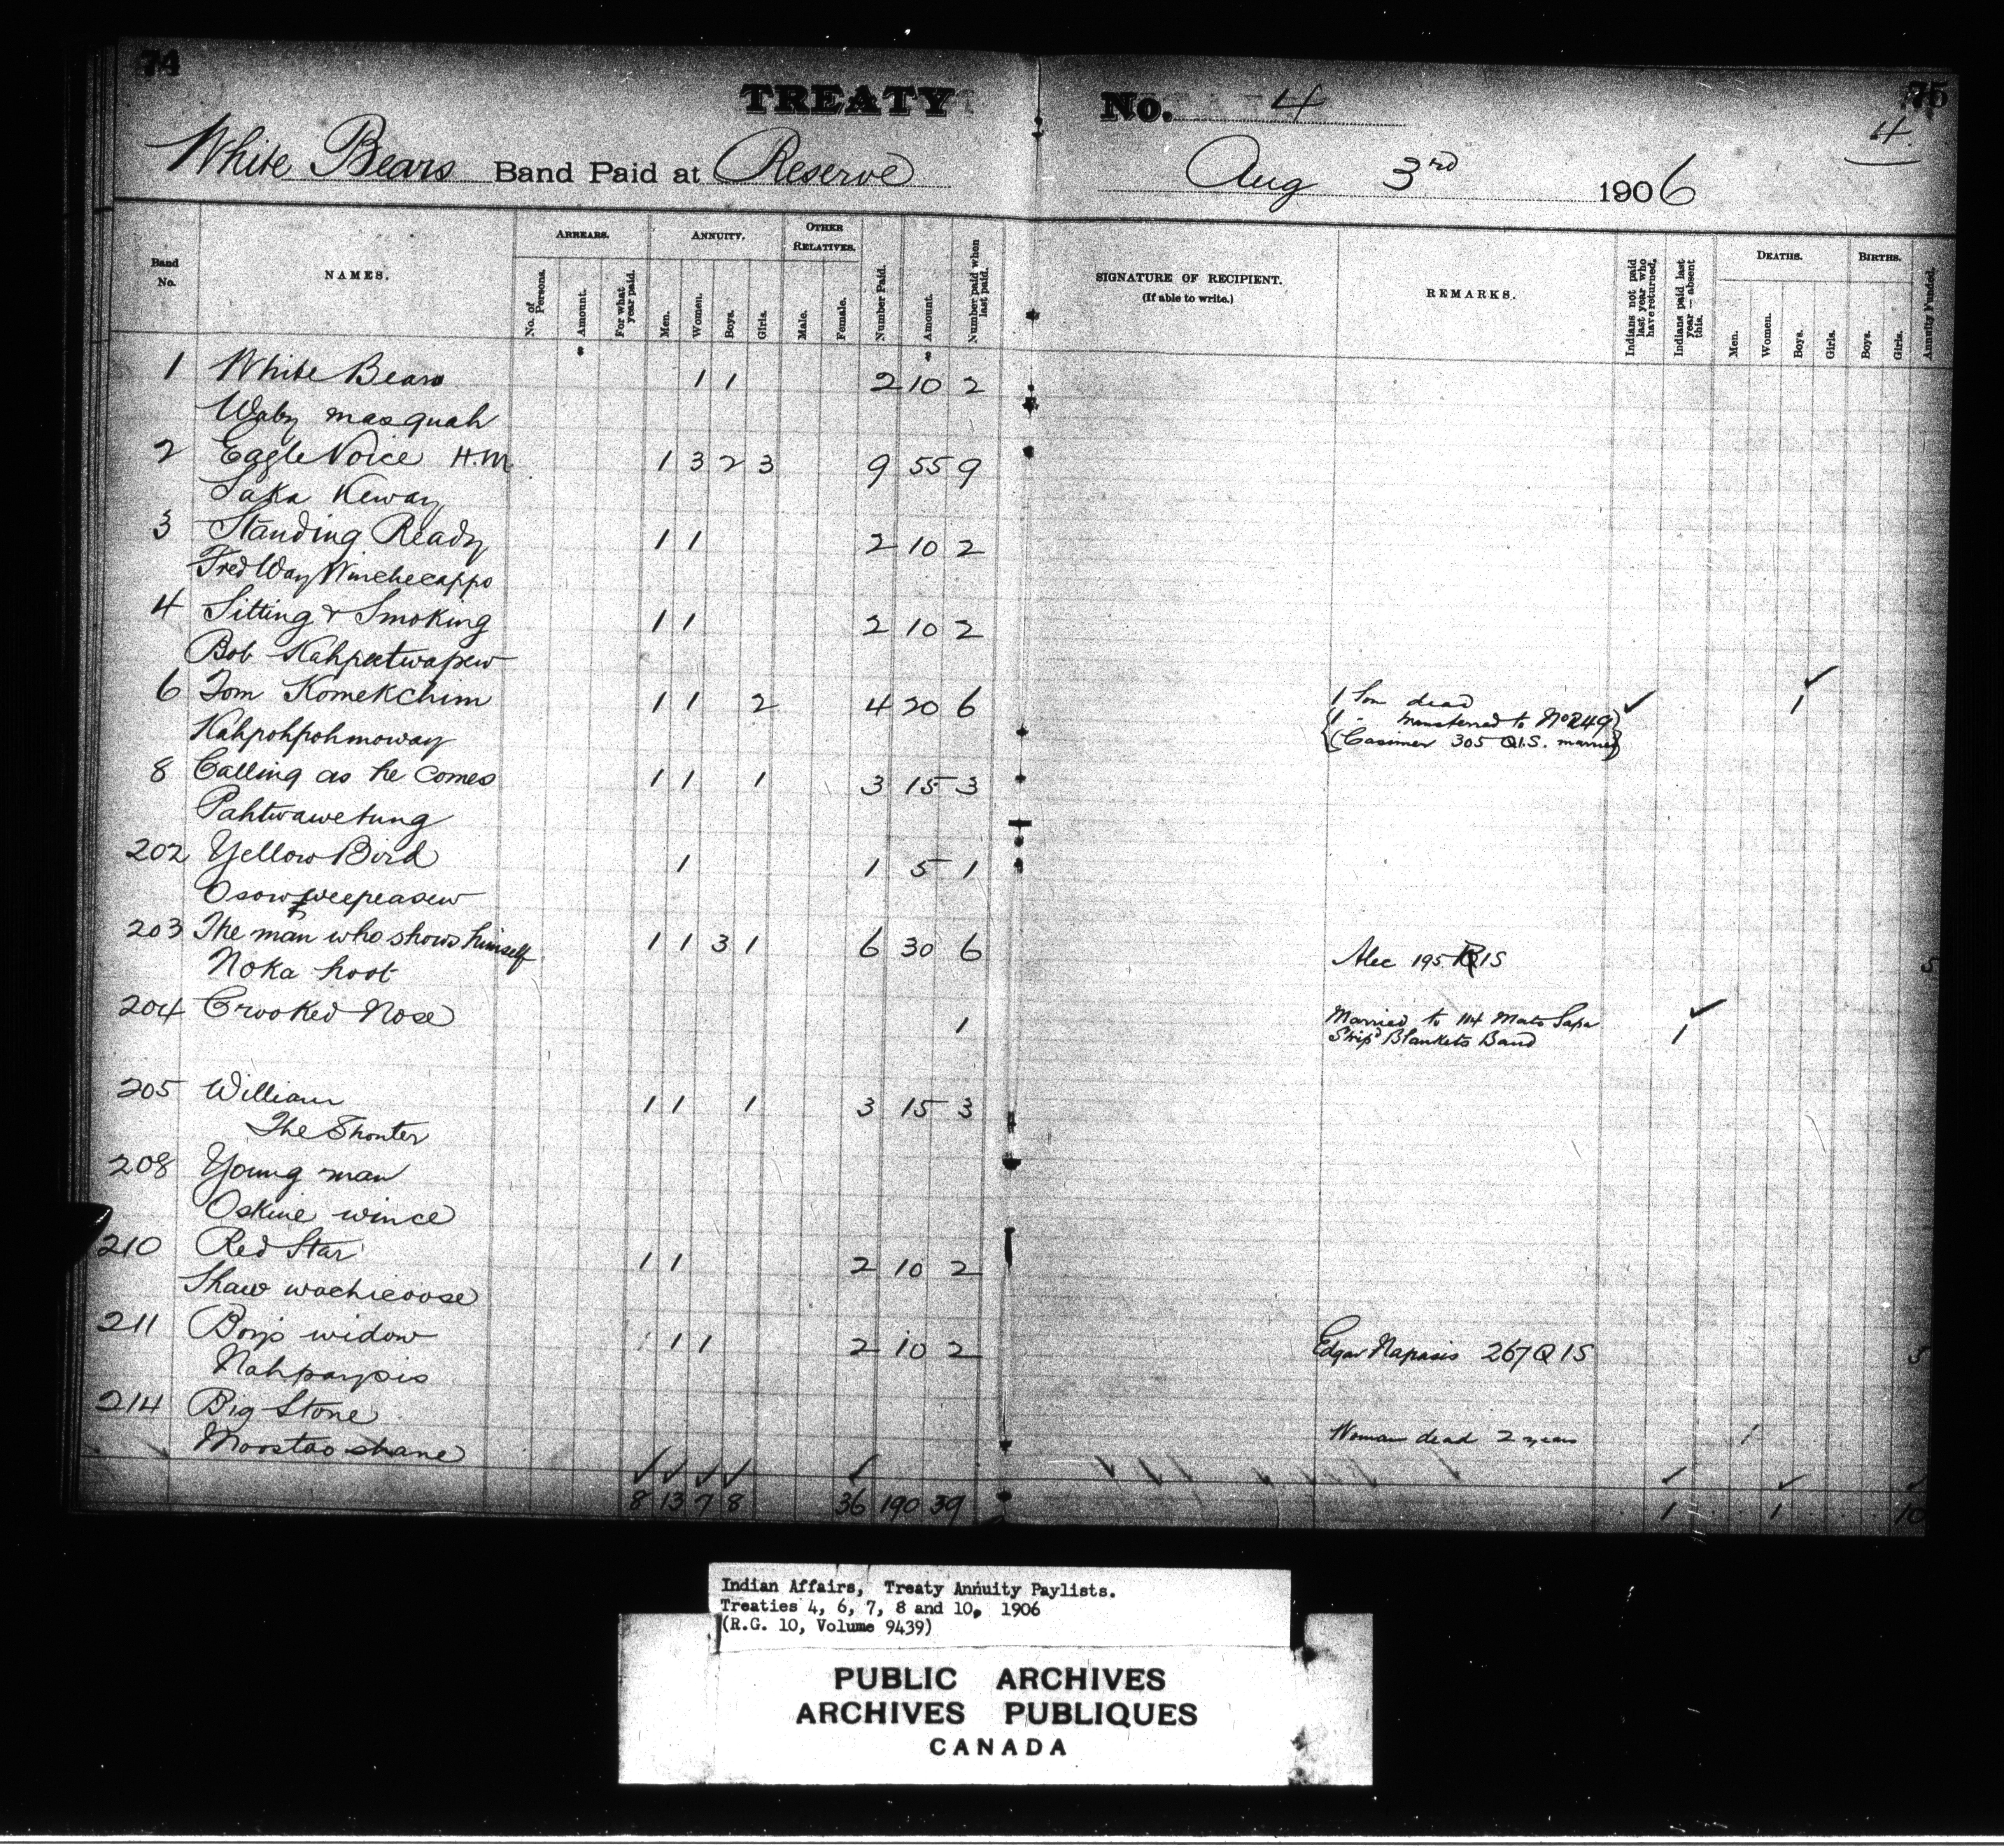 74
75
TREATY No. 4
4.
White Bears Band Paid at Reserve Aug 3rd 1906
Band No.
NAMES.
ARREARS.
No. of Persons.
Amount.
For what year paid.
ANNUITY.
Men.
Women.
Boys.
Girls.
OTHER RELATIVES.
Male.
Female.
Number Paid.
Amount.
Number paid when last paid.
SIGNATURE OF RECIPIENT.
(If able to write.)
REMARKS.
Indians not paid last year who have returned.
Indians paid last year—absent this.
DEATHS.
Men.
Women.
Boys.
Girls.
BIRTHS.
Boys.
Girls.
Annuity Funded.
1 White Bears 1 1 2 10 2
Waby masquah
2 Eagle Voice H.M. 1 3 2 3 9 55 9
Saka Keway
3 Standing Ready 1 1 2 10 2
Fred Way Winchecappo
4 Sitting & Smoking 1 1 2 10 2
Bob Kahpeetwapew
6 Tom Komekchim 1 1 2 4 20 6 1 Son dead 1
Kahpohpohmoway 1 " transferred to No 249
Casimer 305 Q.I.S. married
8 Calling as he comes 1 1 1 3 15 3
Pahtwawetung
202 Yellow Bird 1 1 5 1
Osowweepeasew
203 The man who shows himself 1 1 3 1 6 30 6 Alec 195 QIS 5
Noka hoot
204 Crooked Nose 1 Married to 114 Mato Sapa 1
Strip'd Blankets Band
205 William 1 1 1 3 15 3
The Shouter
208 Young man
Oskine wince
210 Red Star 1 1 2 10 2
Shaw wachicoose
211 Boy's widow 1 1 2 10 2 Edgar Napasis 267 QIS
Nahpaypis
214 Big Stone
Moostoo shane Woman dead 2 years 1
8 13 7 8 36 190 39 1 1 10
Indian Affairs, Treaty Annuity Paylists.
Treaties 4, 6, 7, 8 and 10, 1906
(R.G. 10, Volume 9439)
PUBLIC ARCHIVES
ARCHIVES PUBLIQUES
CANADA